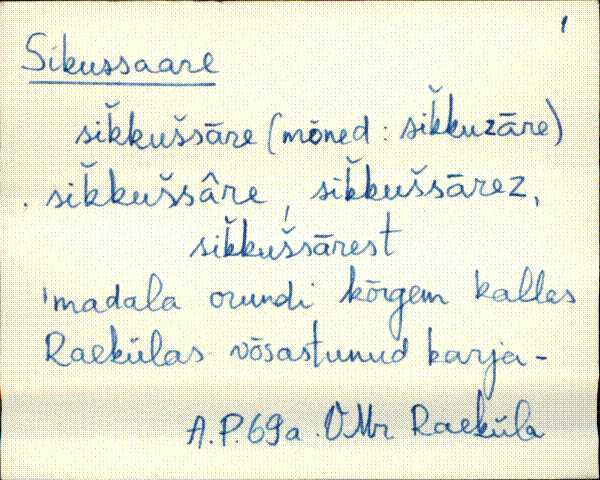 1
Sikussaare
sik̆kušsāre (mõned: sik̆kuzāre)
sik̆kušsâre, sik̆kušsārez,
sik̆kušsārest
'madala orundi kõrgem kallas
Raekülas võsastunud karja-
A.P. 69a. VMr Raeküla